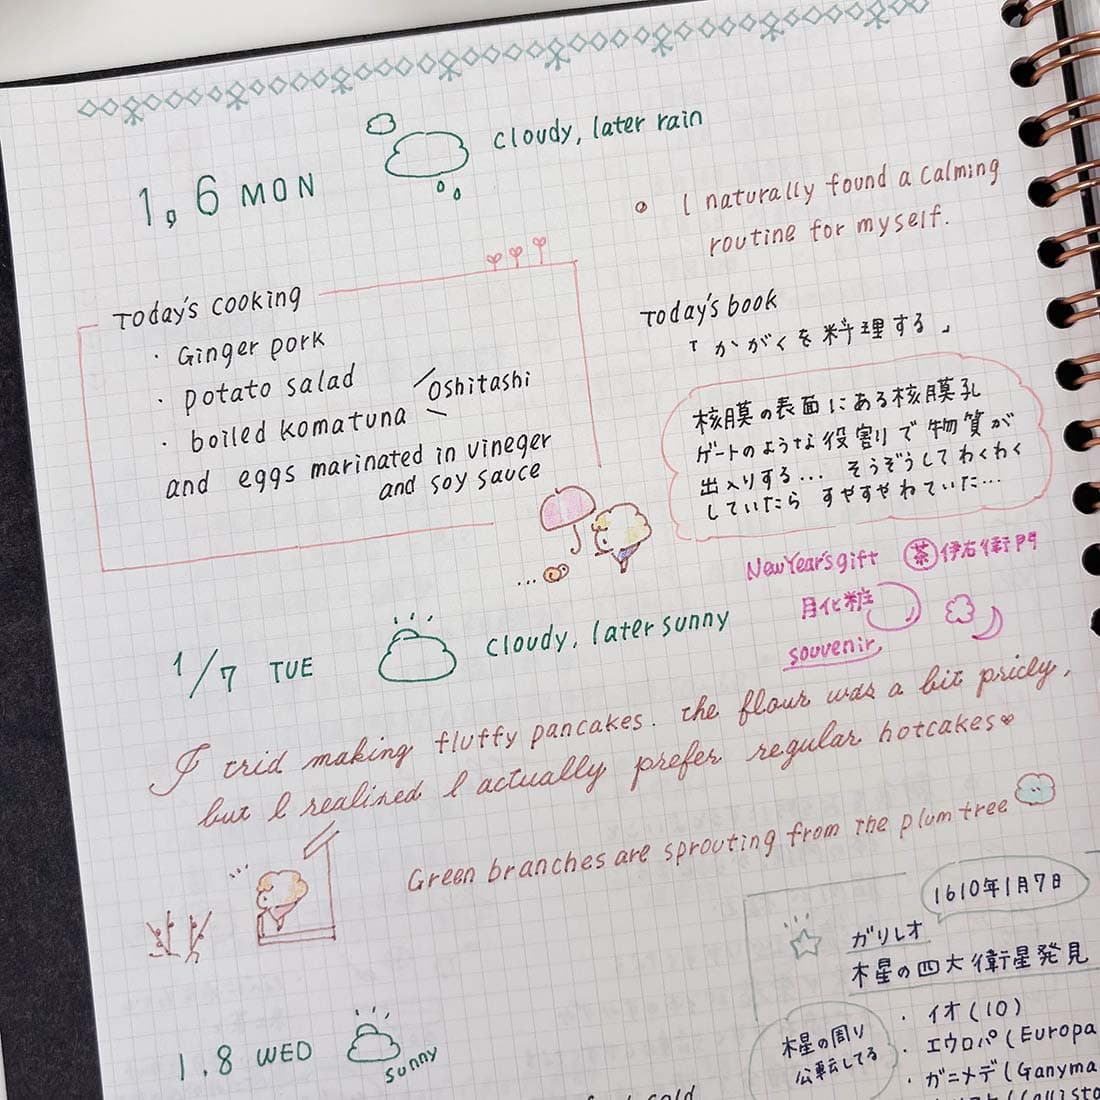 cloudy, later rain
1, 6 MON
I naturally found a calming
routine for myself.
Today's cooking
· Ginger pork
· potato salad
· boiled komatuna
oshitashi
and eggs marinated in vineger
and soy sauce
Today's book
「かがくを料理する」
核膜の表面にある核膜孔
ゲートのような役割で物質が
出入りする... そうぞうしてわくわく
していたら すやすやねていた...
New Year's gift
茶 伊右衛門
月化粧
souvenir
1/7 TUE
cloudy, later sunny
I trid making fluffy pancakes. the flour was a bit pricly,
but I realined I actually prefer regular hotcakes
Green branches are sprouting from the plum tree
1610年1月7日
ガリレオ
木星の四大衛星発見
木星の周り
公転してる
· イオ(IO)
· エウロパ(Europa
· ガニメデ(Ganyma
1.8 WED
sunny